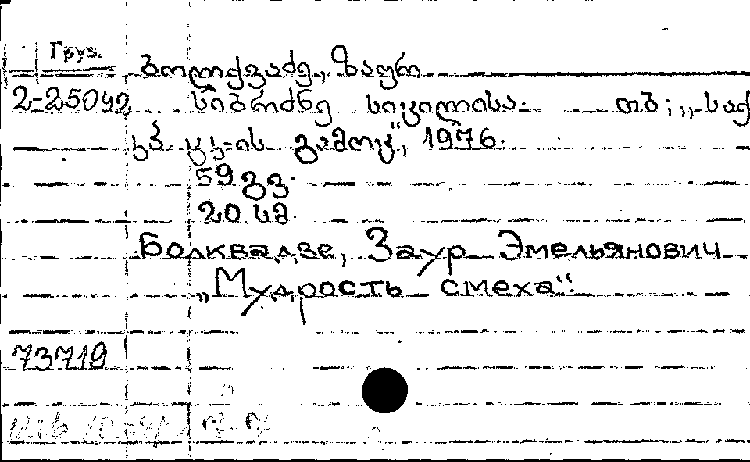 Груз.
ბოლქვაძე, ზაური
2-25042 სიბრძნე სიცილისა. თბ; „საქ
კპ ცკ-ის გამოც", 1976.
59 გვ.
20 სმ.
Болквадзе, Заур Эмельянович
„Мудрость смеха".
73719